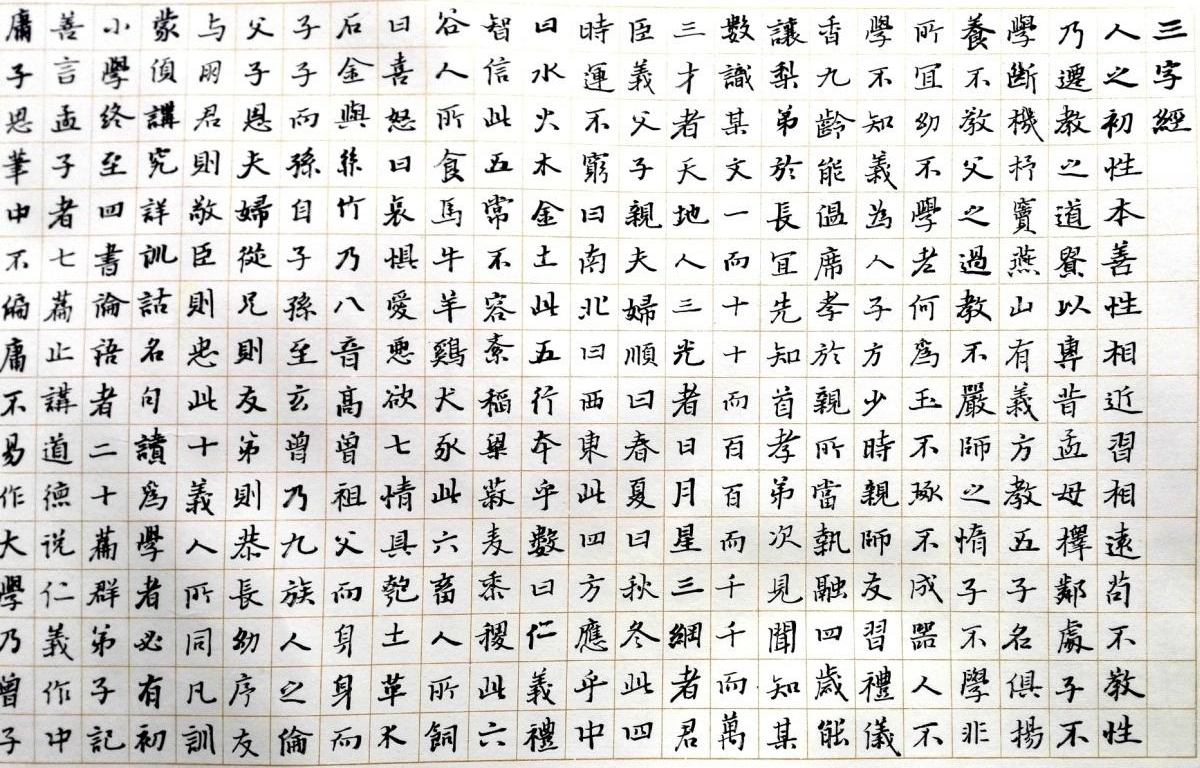 三字經
人之初性本善性相近習相遠苟不教性
乃遷教之道貴以專昔孟母擇鄰處子不
學斷機杼竇燕山有義方教五子名俱揚
養不教父之過教不嚴師之惰子不學非
所宜幼不學老何爲玉不琢不成器人不
學不知義为人子方少時親師友習禮儀
香九齡能溫席孝於親所當執融四歲能
讓梨弟於長宜先知首孝弟次見聞知某
數識某文一而十十而百百而千千而萬
三才者天地人三光者日月星三綱者君
臣義父子親夫婦順曰春夏曰秋冬此四
時運不窮曰南北曰西東此四方應乎中
曰水火木金土此五行本乎數曰仁義禮
智信此五常不容紊稻粱菽麦黍稷此六
谷人所食馬牛羊雞犬豕此六畜人所飼
曰喜怒曰哀懼愛惡欲七情具匏土革木
石金與絲竹乃八音高曾祖父而身身而
子子而孫自子孫至玄曾乃九族人之倫
父子恩夫婦從兄則友弟則恭長幼序友
与朋君則敬臣則忠此十義人所同凡訓
蒙須講究詳訓詁名句讀爲學者必有初
小學終至四書論語者二十篇群弟子記
善言孟子者七篇止講道德说仁義作中
庸子思筆中不偏庸不易作大學乃曾子